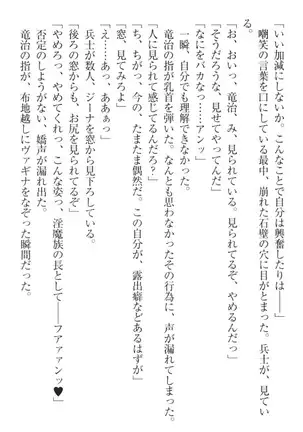 「いい加減にしないか。こんなことで自分は興奮したりは――」
嘲笑の言葉を口にしている最中、崩れた石壁の穴に目がとまった。兵士が、見てい
る。
「お、おいっ、竜治、み、見られている。見られてるぞ、やめるんだっ」
「そうだろうな、見せてやってんだ」
「なにをバカな……アンッ」
一瞬、自分でも理解できなかった。
竜治の指が乳首を弾いた。なんとも思わなかったその行為に、声が漏れてしまった。
「人に見られて感じてるんだろ？」
「ち、ちがっ、今の、たまたま偶然だ。この自分が、露出癖などあるはずが」
「窓、見てみろよ」
「え……。あっ、ああぁっ」
兵士が数人、ジーナを窓から見下ろしている。
「後ろの窓からも、お尻を見られてるぞ」
「やめろっ、やめてくれっ、こんな姿っ、淫魔族の長として――フアァァンッ♥」
否定のしようがない、嬌声が漏れ出た。
竜治の指が、布地越しにヴァギナをなぞった瞬間だった。